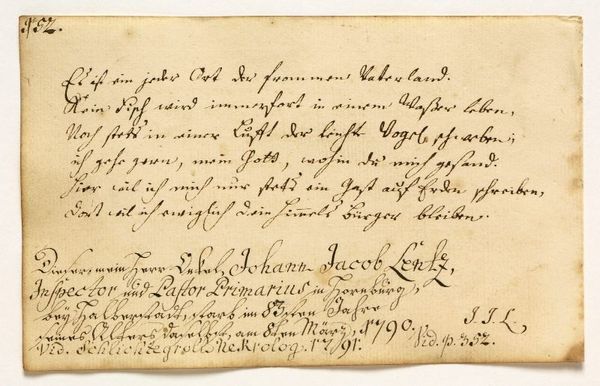 p. 52.
Es ist ein jeder Ort der frommen Vaterland.
Kein Fisch wird immerfort in einem Waßer leben,
Noch stets in einer Lufft der leichte Vogel schweben;
ich gehe gern, mein Gott, wohin du mich gesand.
Hier will ich mich nur stets ein Gast auf Erden schreiben,
Dort will ich ewiglich dein Himmels Bürger bleiben.
Dieser, mein Herr Onkel, Johann Jacob Lentz,
Inspector und Pastor Primarius in Hornburg,
bey Halberstadt, starb im 83sten Jahre
seines Alters daselbst, am 8ten März, 1790.
J. J. L.
Vid. Schlichtegrolls Nekrolog. 1791.
Vid. p. 352.